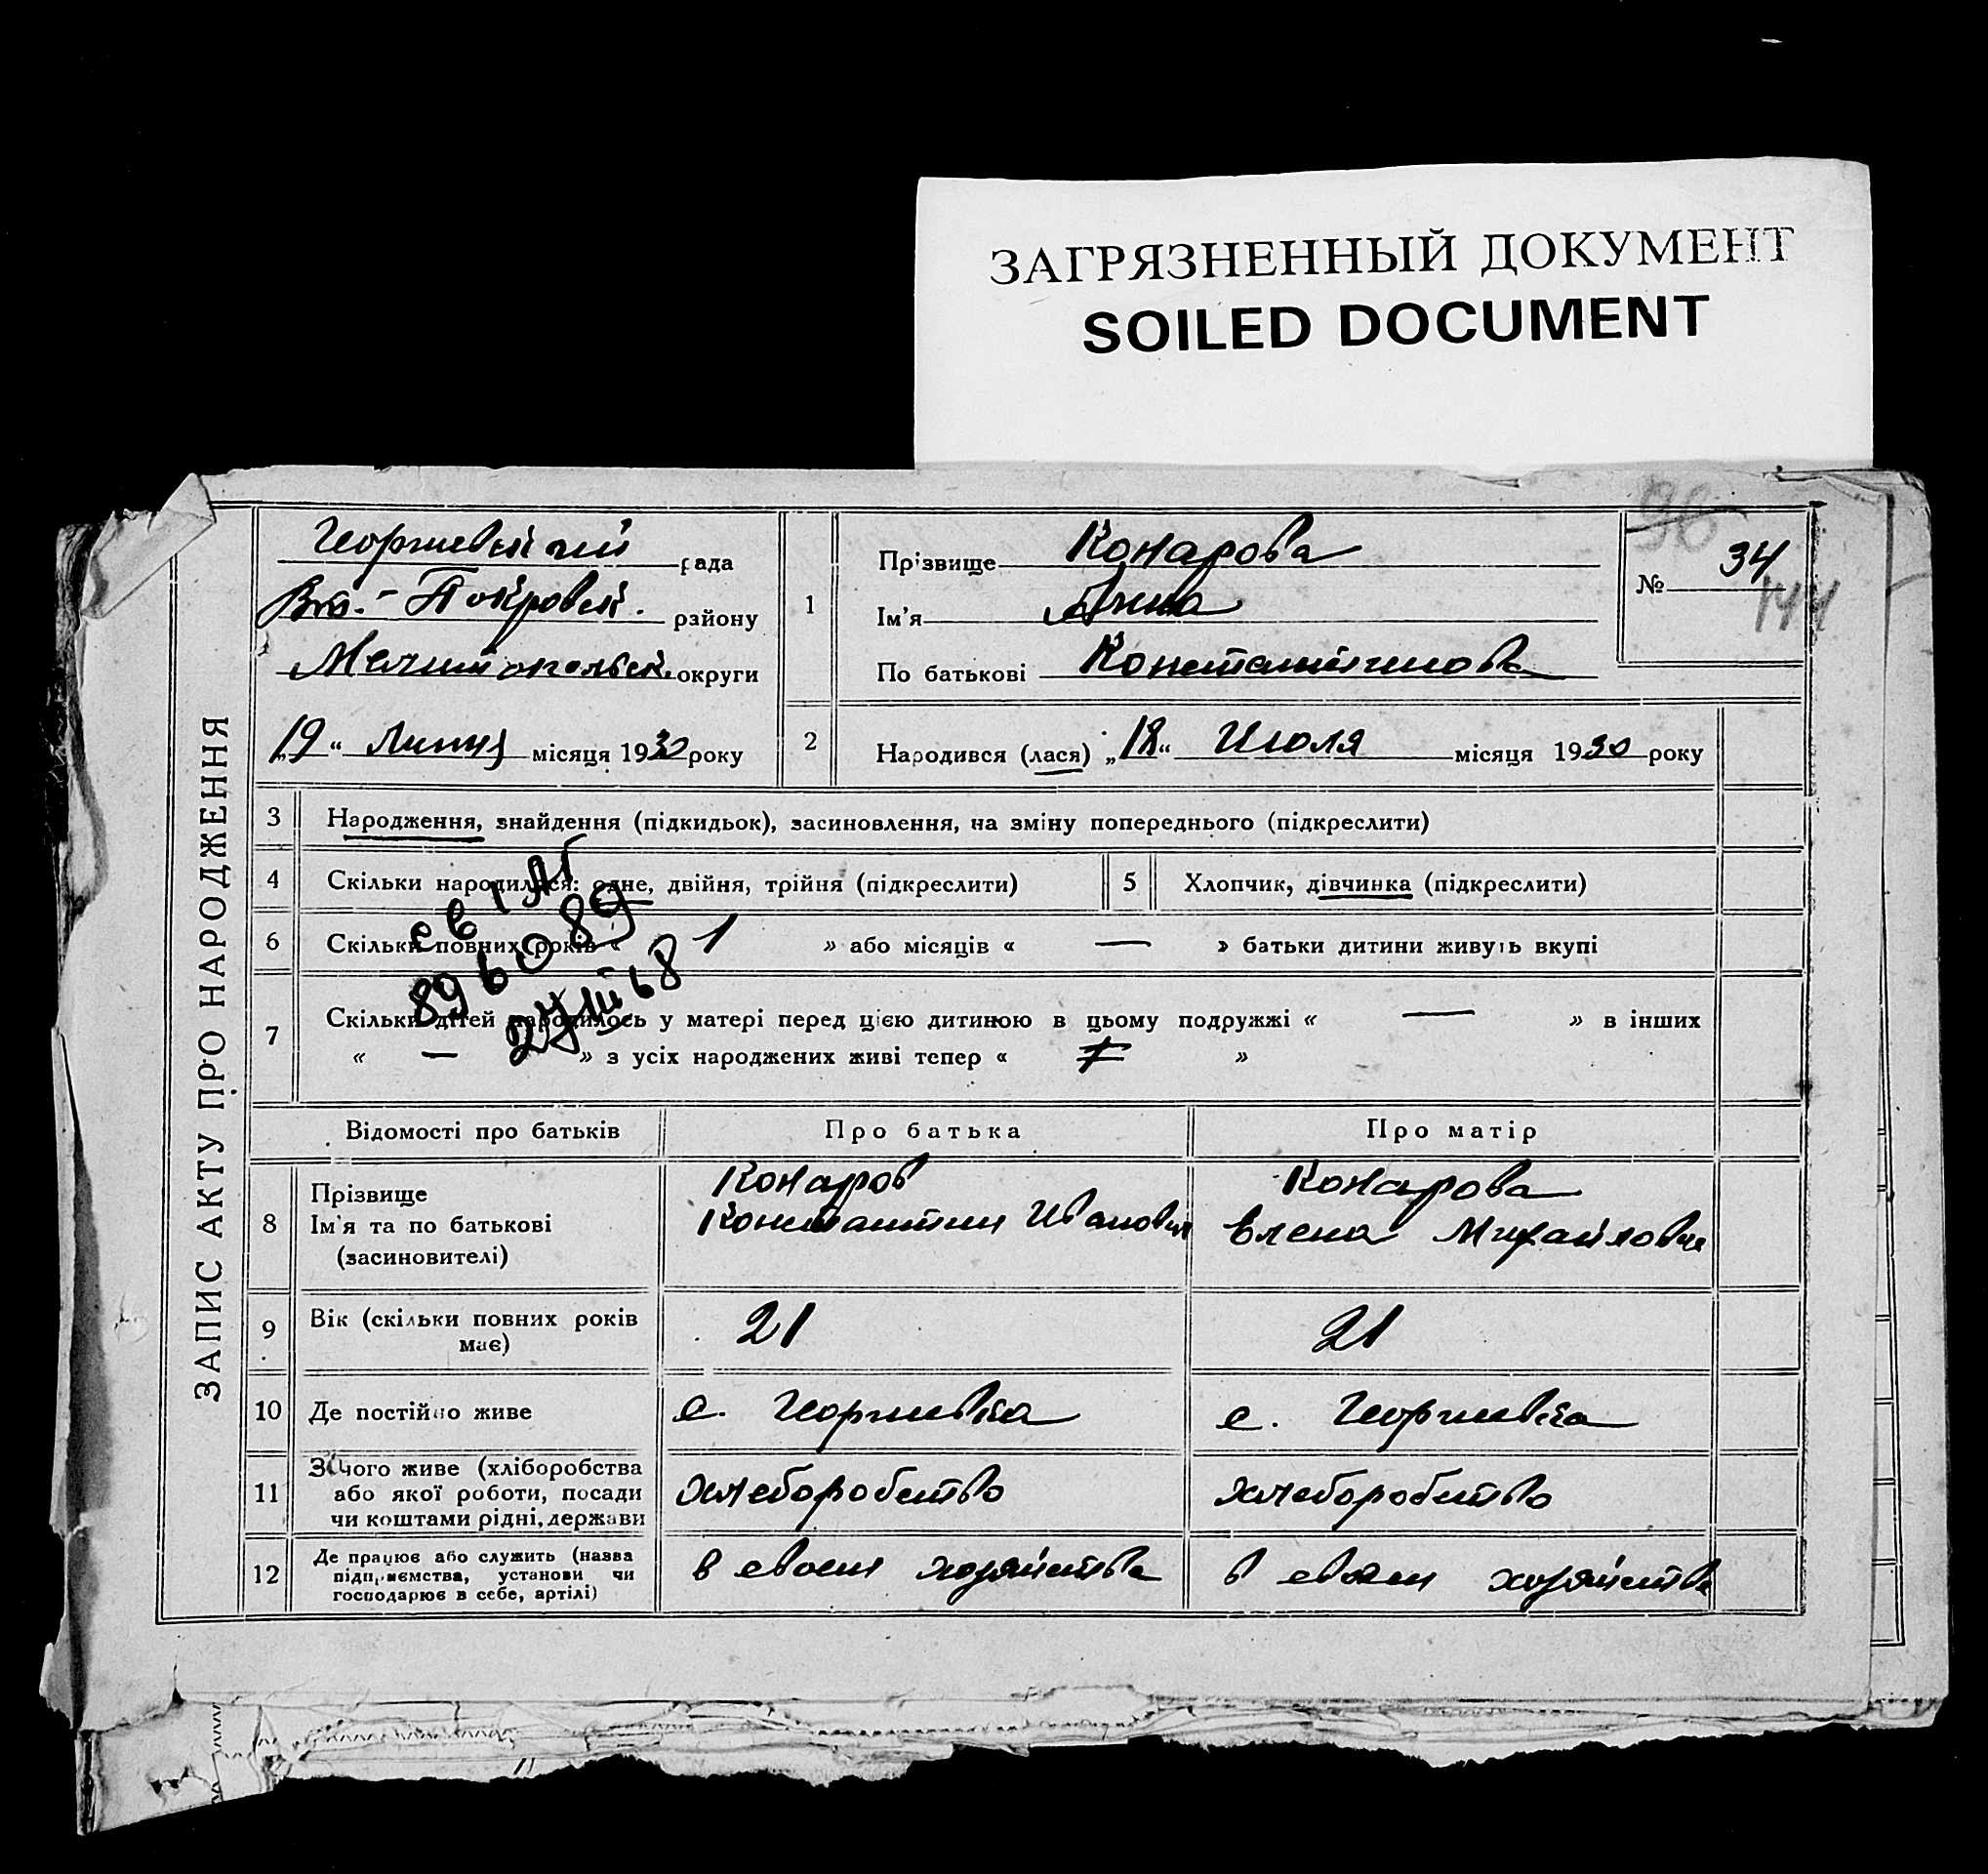 ЗАГРЯЗНЕННЫЙ ДОКУМЕНТ
SOILED DOCUMENT
ЗАПИС АКТУ ПРО НАРОДЖЕННЯ
рада
Вко.-Покровск. району
Мелитопольск. округи
„19“ Липня місяця 1930 року
96
№ 34
144
1
Прізвище Конарова
Ім'я Анна
По батькові Константинова
2
Народився (лася) „18“ Июля місяця 1930 року
3 Народження, знайдення (підкидьок), засиновлення, на зміну попереднього (підкреслити)
4 Скільки народилося: одне, двійня, трійня (підкреслити)
5 Хлопчик, дівчинка (підкреслити)
6 Скільки повних років « 1 » або місяців « — » батьки дитини живуть вкупі
7 Скільки дітей народилось у матері перед цією дитиною в цьому подружжі « — » в інших
« — » з усіх народжених живі тепер « »
Відомості про батьків Про батька Про матір
8
Прізвище Конаров Конарова
Ім'я та по батькові Константин Иванович Елена Михайловна
(засиновителі)
9 Вік (скільки повних років 21 21
має)
10 Де постійно живе с. Георгиевка с. Георгиевка
11
З чого живе (хліборобства
або якої роботи, посади хлеборобство хлеборобство
чи коштами рідні, держави
12
Де працює або служить (назва
підприємства, установи чи в своем хозяйстве в своем хозяйстве
господарює в себе, артілі)